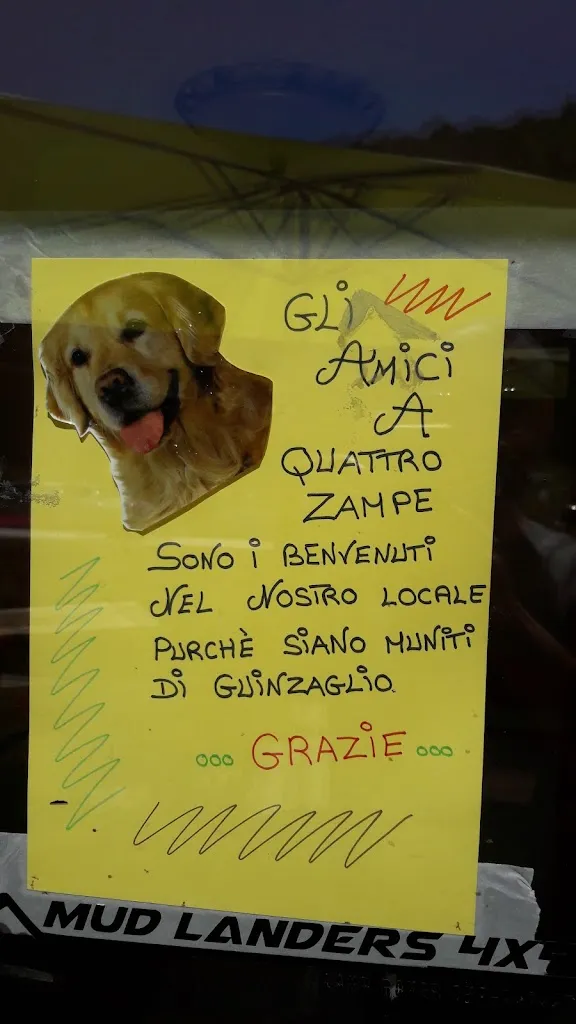 GLi
AMiCi
A
QUATTRO
ZAMPE
SONO i BENVENUTi
NEL NOSTRO LOCALE
PURCHÈ SiANO MUNiTi
Di GUiNZAGLiO.
ooo GRAZiE ooo
MUD LANDERS 4X4